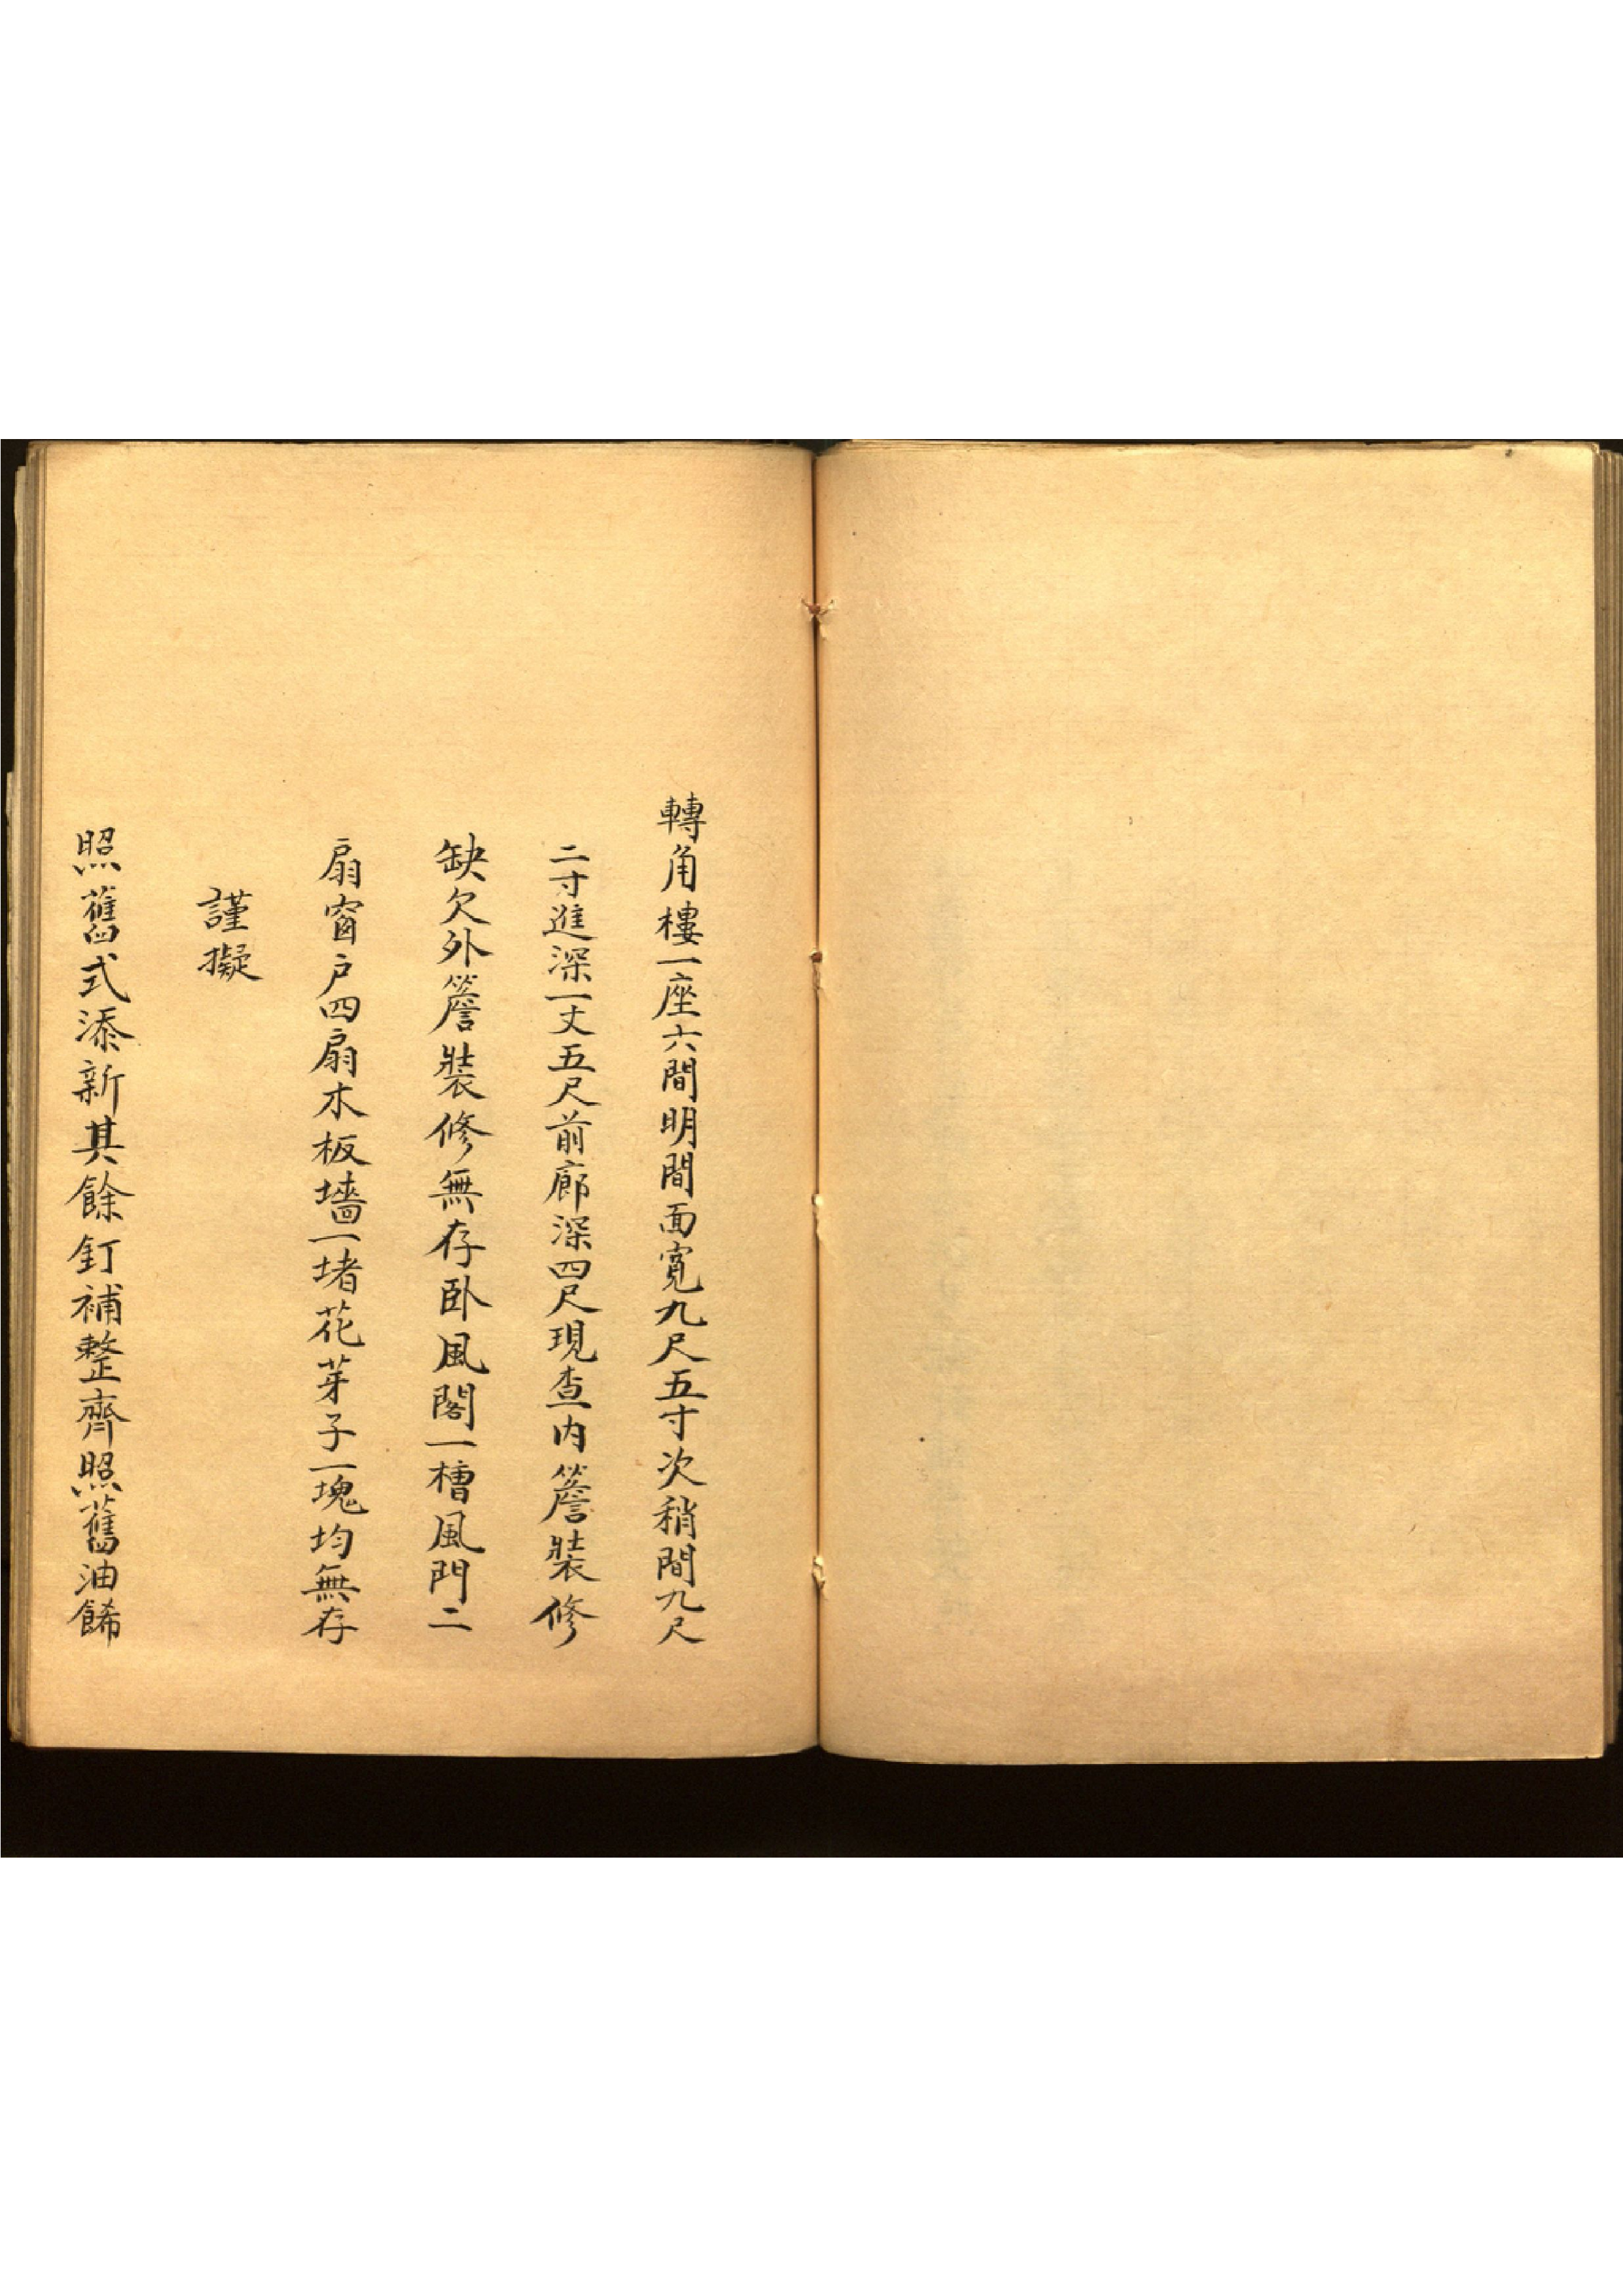 轉角樓一座六間明間面寬九尺五寸次稍間九尺
二寸進深一丈五尺前廊深四尺現查內簷裝修
缺欠外簷裝修無存卧風閣一槽風門二
扇窗户四扇木板墻一堵花芽子一塊均無存
謹擬
照舊式添新其餘釘補整齊照舊油餙